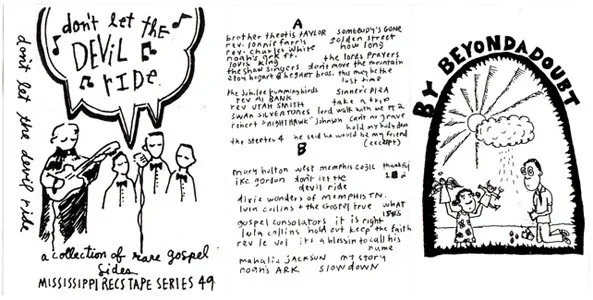 don't let the devil ride
don't let the
DEVIL
RIDE
a collection of rare gospel
sides
MISSISSIPPI RECS TAPE SERIES 49
A
brother theotis TAYLOR somebody's GONE
rev. lonnie farris golden street
rev. charles white how long
noah's ark ft.
louis king the lords prayers
the shaw singers don't move the mountain
stay hogart bros. this may be the
last time
the jubilee hummingbirds sinner's plea
rev AL BANK take a trip
rev UTAH SMITH
SWAN SILVERTONES lord walk with me pt 2
robert "NIGHTHAWK" Johnson can't no grave
hold my body down
the starter 4 he said he would be my friend
(excerpt)
B
mary bolton west memphis cogic thankful
ike gordon don't let the
devil ride
dixie wonders of MEMPHIS TN.
lula collins + the Gospel true WHAT
gospel consolators it is right
lula collins hold out keep the faith
rev le vol its a blessin to call his
name
mahalia JACKSON my story
noah's ARK SLOW DOWN
BY BEYONDADOUBT